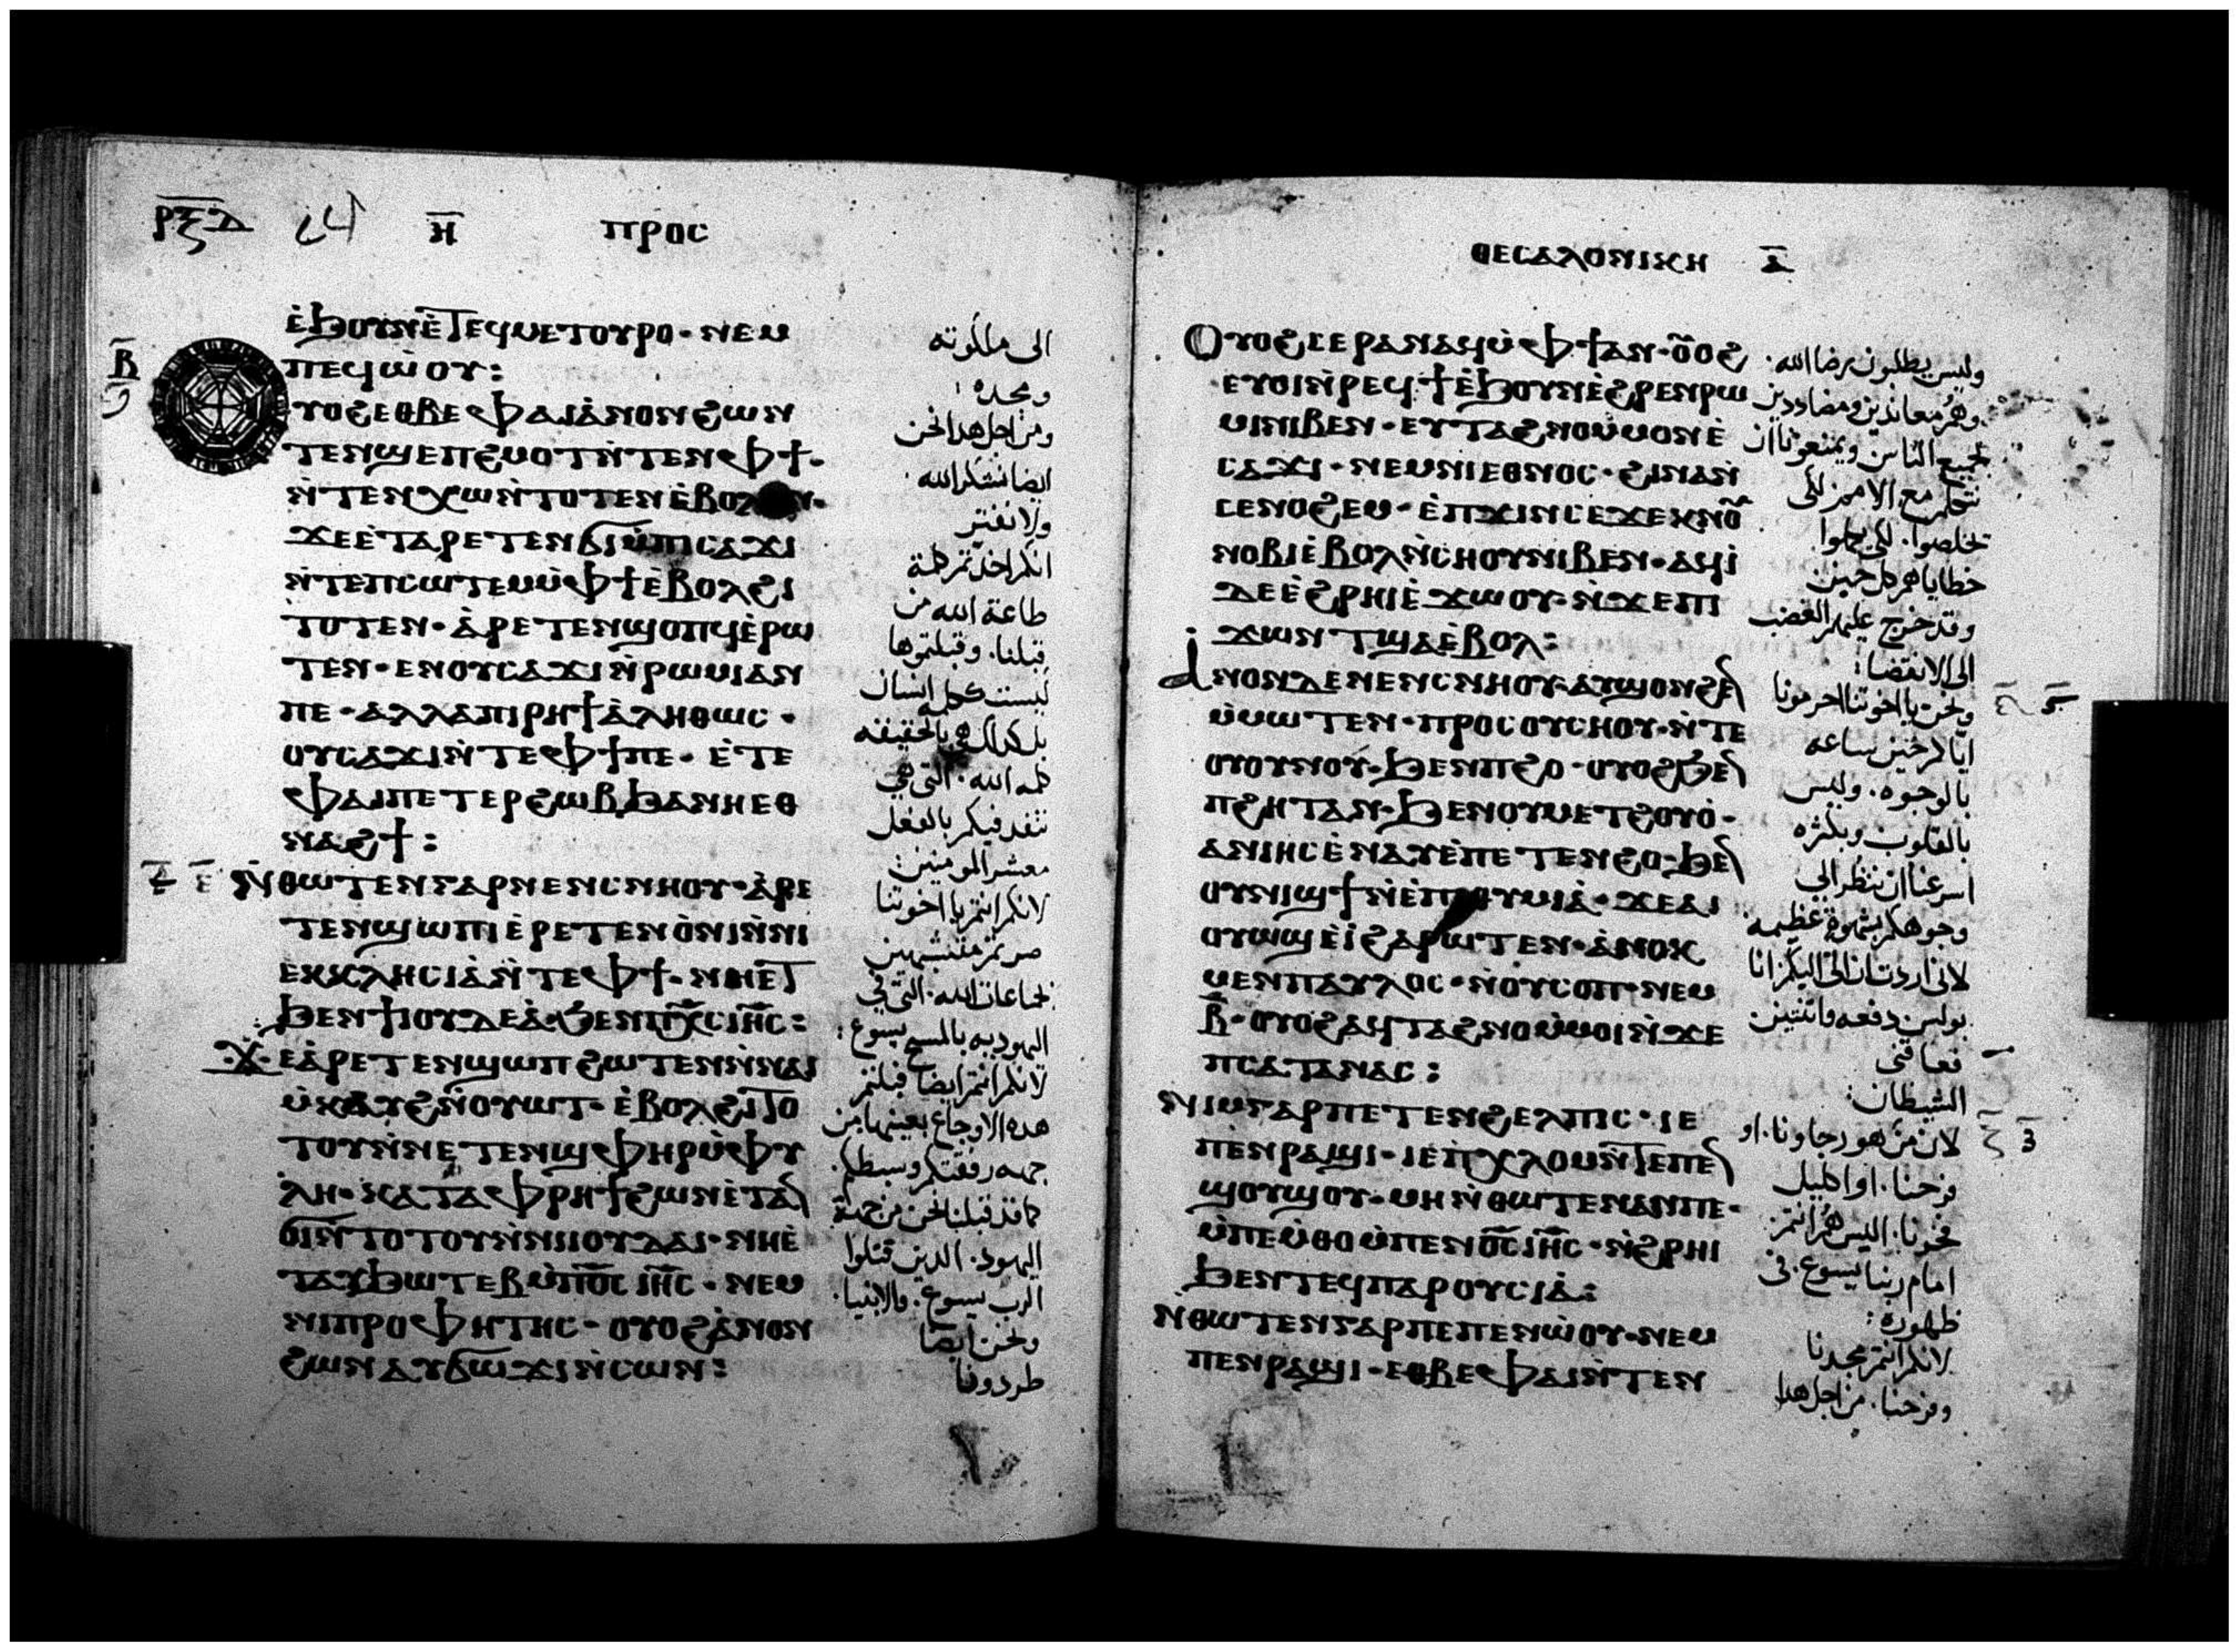 ⲣⲝⲇ ⲏ ⲡⲣⲟⲥ
ⲉ̀ϧⲟⲩⲛⲉ̀ⲧⲉϥⲙⲉⲧⲟⲩⲣⲟ · ⲛⲉⲙ
ⲡⲉϥⲱ̀ⲟⲩ :
ⲩⲟϩⲉⲑⲃⲉⲫⲁⲓⲁ̀ⲛⲟⲛϩⲱⲛ
ⲧⲉⲛϣⲉⲡϩⲙⲟⲧⲛ̀ⲧⲉⲛⲫϯ ·
ⲛ̀ⲧⲉⲛⲭⲱⲛ̀ⲧⲟⲧⲉⲛⲉ̀ⲃⲟⲗ
ϫⲉⲉ̀ⲧⲁⲣⲉⲧⲉⲛϭⲓⲙ̀ⲡⲓⲥⲁϫⲓ
ⲛ̀ⲧⲉⲡⲥⲱⲧⲉⲙⲙ̀ⲫϯⲉ̀ⲃⲟⲗϩⲓ
ⲧⲟⲧⲉⲛ · ⲁ̀ⲣⲉⲧⲉⲛϣⲟⲡϥⲉ̀ⲣⲱ
ⲧⲉⲛ · ⲉⲛⲟⲩⲥⲁϫⲓⲛ̀ⲣⲱⲙⲓⲁⲛ
ⲡⲉ · ⲁⲗⲗⲁⲡⲓⲣⲏϯⲁ̀ⲗⲏⲑⲱⲥ ·
ⲟⲩⲥⲁϫⲓⲛ̀ⲧⲉⲫϯⲡⲉ · ⲉ̀ⲧⲉ
ⲫⲁⲓⲡⲉⲧⲉⲣϩⲱⲃϧⲁⲛⲏⲉⲑ
ⲛⲁϩϯ :
ⲛ̀ⲑⲱⲧⲉⲛⲅⲁⲣⲛⲉⲛⲥⲛⲏⲟⲩ · ⲁ̀ⲣⲉ
ⲧⲉⲛϣⲱⲡⲓⲉ̀ⲣⲉⲧⲉⲛⲟ̀ⲛⲓⲛ̀ⲛⲓ
ⲉⲕⲕⲗⲏⲥⲓⲁ̀ⲛ̀ⲧⲉⲫϯ · ⲛⲏⲉⲧ
ϧⲉⲛϯⲓⲟⲩⲇⲉⲁ̀ · ϧⲉⲛⲡⲭ̅ⲥⲓⲏ̅ⲥ :
ϫⲉⲁ̀ⲣⲉⲧⲉⲛϣⲱⲡϩⲱⲧⲉⲛⲛ̀ⲛⲁⲓ
ⲙ̀ⲕⲁⲩϩⲛ̀ⲟⲩⲱⲧ · ⲉ̀ⲃⲟⲗϩⲓⲧⲟ
ⲧⲟⲩⲛ̀ⲛⲉⲧⲉⲛϣⲫⲏⲣⲙ̀ⲫⲩ
ⲗⲏ · ⲕⲁⲧⲁⲫⲣⲏϯϩⲱⲛⲉ̀ⲧⲁⲛ
ϭⲓⲛ̀ⲧⲟⲧⲟⲩⲛ̀ⲛⲓⲓⲟⲩⲇⲁⲓ · ⲛⲏⲉ̀
ⲧⲁⲩϧⲱⲧⲉⲃⲙ̀ⲡⲟ̅ⲥ̅ ⲓⲏ̅ⲥ · ⲛⲉⲙ
ⲛⲓⲡⲣⲟⲫⲏⲧⲏⲥ · ⲟⲩⲟϩⲁ̀ⲛⲟⲛ
ϩⲱⲛⲁⲩϭⲱϫⲓⲛ̀ⲥⲱⲛ :
الى ملكوته
ومجده :
ومن اجل هدا نحن
ايضا نشكر الله
ولا نفتر
انكم اخذتم كلمة
طاعة الله من
قبلنا · وقبلتموها
ليست ككلمة انسان
بل كذلك هي بالحقيقه
كلمه الله · التي هي
تنفد فيكم بالفعل
معشر المومنين :
لانكم انتم يا اخوتنا
صرتم متشبهين
بجماعات الله · التي في
اليهوديه بالمسيح يسوع :
لانكم انتم ايضا قبلتم
هده الاوجاع بعينها من
جهه رفقتكم وسبطكم ·
كما قد قبلنا نحن من جهة
اليهود · الدين قتلوا
الرب يسوع · والانبيا ·
ونحن ايضا
طردونا
ⲑⲉⲥⲁⲗⲟⲛⲓⲕⲏ ⲁ̅
ⲟⲩⲟϩⲥⲉⲣⲁⲛⲁϥⲙ̀ⲫϯⲁⲛ · ⲟ̅ⲟϩ
ⲉⲩⲟⲓⲛ̀ⲣⲉϥϯⲉ̀ϧⲟⲩⲛⲉ̀ϩⲣⲉⲛⲣⲱ
ⲙⲓⲛⲓⲃⲉⲛ · ⲉⲩⲧⲁϩⲛⲟⲙ̀ⲙⲟⲛⲉ̀
ⲥⲁϫⲓ · ⲛⲉⲙⲛⲓⲉⲑⲛⲟⲥ · ϩⲓⲛⲁⲛ̀
ⲥⲉⲛⲟϩⲉⲙ · ⲉ̀ⲡϫⲓⲛⲥⲉϫⲉⲕⲛⲟ̅
ⲛⲟⲃⲓⲉ̀ⲃⲟⲗⲛ̀ⲥⲏⲟⲩⲛⲓⲃⲉⲛ · ⲁϥⲓ̀
ⲇⲉⲉ̀ϩⲣⲏⲓⲉ̀ϫⲱⲟⲩ · ⲛ̀ϫⲉⲡⲓ
ϫⲱⲛⲧϣⲁⲉ̀ⲃⲟⲗ :
ⲁⲛⲟⲛⲇⲉⲛⲉⲛⲥⲛⲏⲟⲩ · ⲁⲩϣⲟⲛϩⲉⲛ
ⲙ̀ⲙⲱⲧⲉⲛ · ⲡⲣⲟⲥⲟⲩⲥⲏⲟⲩ · ⲛ̀ⲧⲉ
ⲟⲩⲟⲩⲛⲟⲩ · ϧⲉⲛⲡϩⲟ · ⲟⲩⲟϩϧⲉⲛ
ⲡϩⲏⲧⲁⲛ · ϧⲉⲛⲟⲩⲙⲉⲧϩⲟⲩⲟ̀ ·
ⲁⲛⲓⲏⲥⲉ̀ⲛⲁⲩⲉ̀ⲡⲉⲧⲉⲛϩⲟ · ϧⲉⲛ
ⲟⲩⲛⲓϣϯⲛ̀ⲉ̀ⲡⲓⲑⲩⲙⲓⲁ̀ · ϫⲉⲁⲓ
ⲟⲩⲱϣⲉ̀ⲓ̀ϩⲁⲣⲱⲧⲉⲛ · ⲁ̀ⲛⲟⲕ
ⲙⲉⲛⲡⲁⲩⲗⲟⲥ · ⲛ̀ⲟⲩⲥⲟⲡ · ⲛⲉⲙ
ⲃ̅ · ⲟⲩⲟϩⲁϥⲧⲁϩⲛⲟⲙ̀ⲙⲟⲓⲛ̀ϫⲉ
ⲡⲥⲁⲧⲁⲛⲁⲥ :
ⲛⲓⲙⲅⲁⲣⲡⲉⲧⲉⲛϩⲉⲗⲡⲓⲥ · ⲓⲉ
ⲡⲉⲛⲣⲁϣⲓ · ⲓⲉⲡ̀ⲭⲗⲟⲙⲛ̀ⲧⲉⲡⲉⲛ
ϣⲟⲩϣⲟⲩ · ⲙⲏⲛ̀ⲑⲱⲧⲉⲛⲁⲛⲡⲉ ·
ⲙ̀ⲡⲉⲙ̀ⲑⲟⲙ̀ⲡⲉⲛⲟ̅ⲥ̅ⲓⲏ̅ⲥ · ⲛ̀ϩⲣⲏⲓ
ϧⲉⲛⲧⲉϥⲡⲁⲣⲟⲩⲥⲓⲁ̀ :
ⲛ̀ⲑⲱⲧⲉⲛⲅⲁⲣⲡⲉⲡⲉⲛⲱ̀ⲟⲩ · ⲛⲉⲙ
ⲡⲉⲛⲣⲁϣⲓ · ⲉⲑⲃⲉⲫⲁⲓⲛ̀ⲧⲉⲛ
وليس يطلبون رضا الله ·
وهم معاندين ومضاددين
لجميع الناس ويمنعوننا ان
نتكلم مع الامم لكي
يخلصوا · لكي يكملوا
خطاياهم كل حين
وقد خرج عليهم الغضب
الى الانقضا :
ونحن يا اخوتنا احرمونا
اياكم حين ساعه
بالوجوه · وليس
بالقلوب وبكثره
اسرعنا ان ننظر الي
وجوهكم بشهوة عظيمه ·
لاني اردت ان اتي اليكم انا
بولس دفعه واتنتين
فعاقني
الشيطان :
لان من هو رجاونا · او
فرحنا · او اكليل
فخرنا · اليس هم انتم
امام ربنا يسوع · في
ظهوره :
لانكم انتم مجدنا
وفرحنا · من اجل هدا